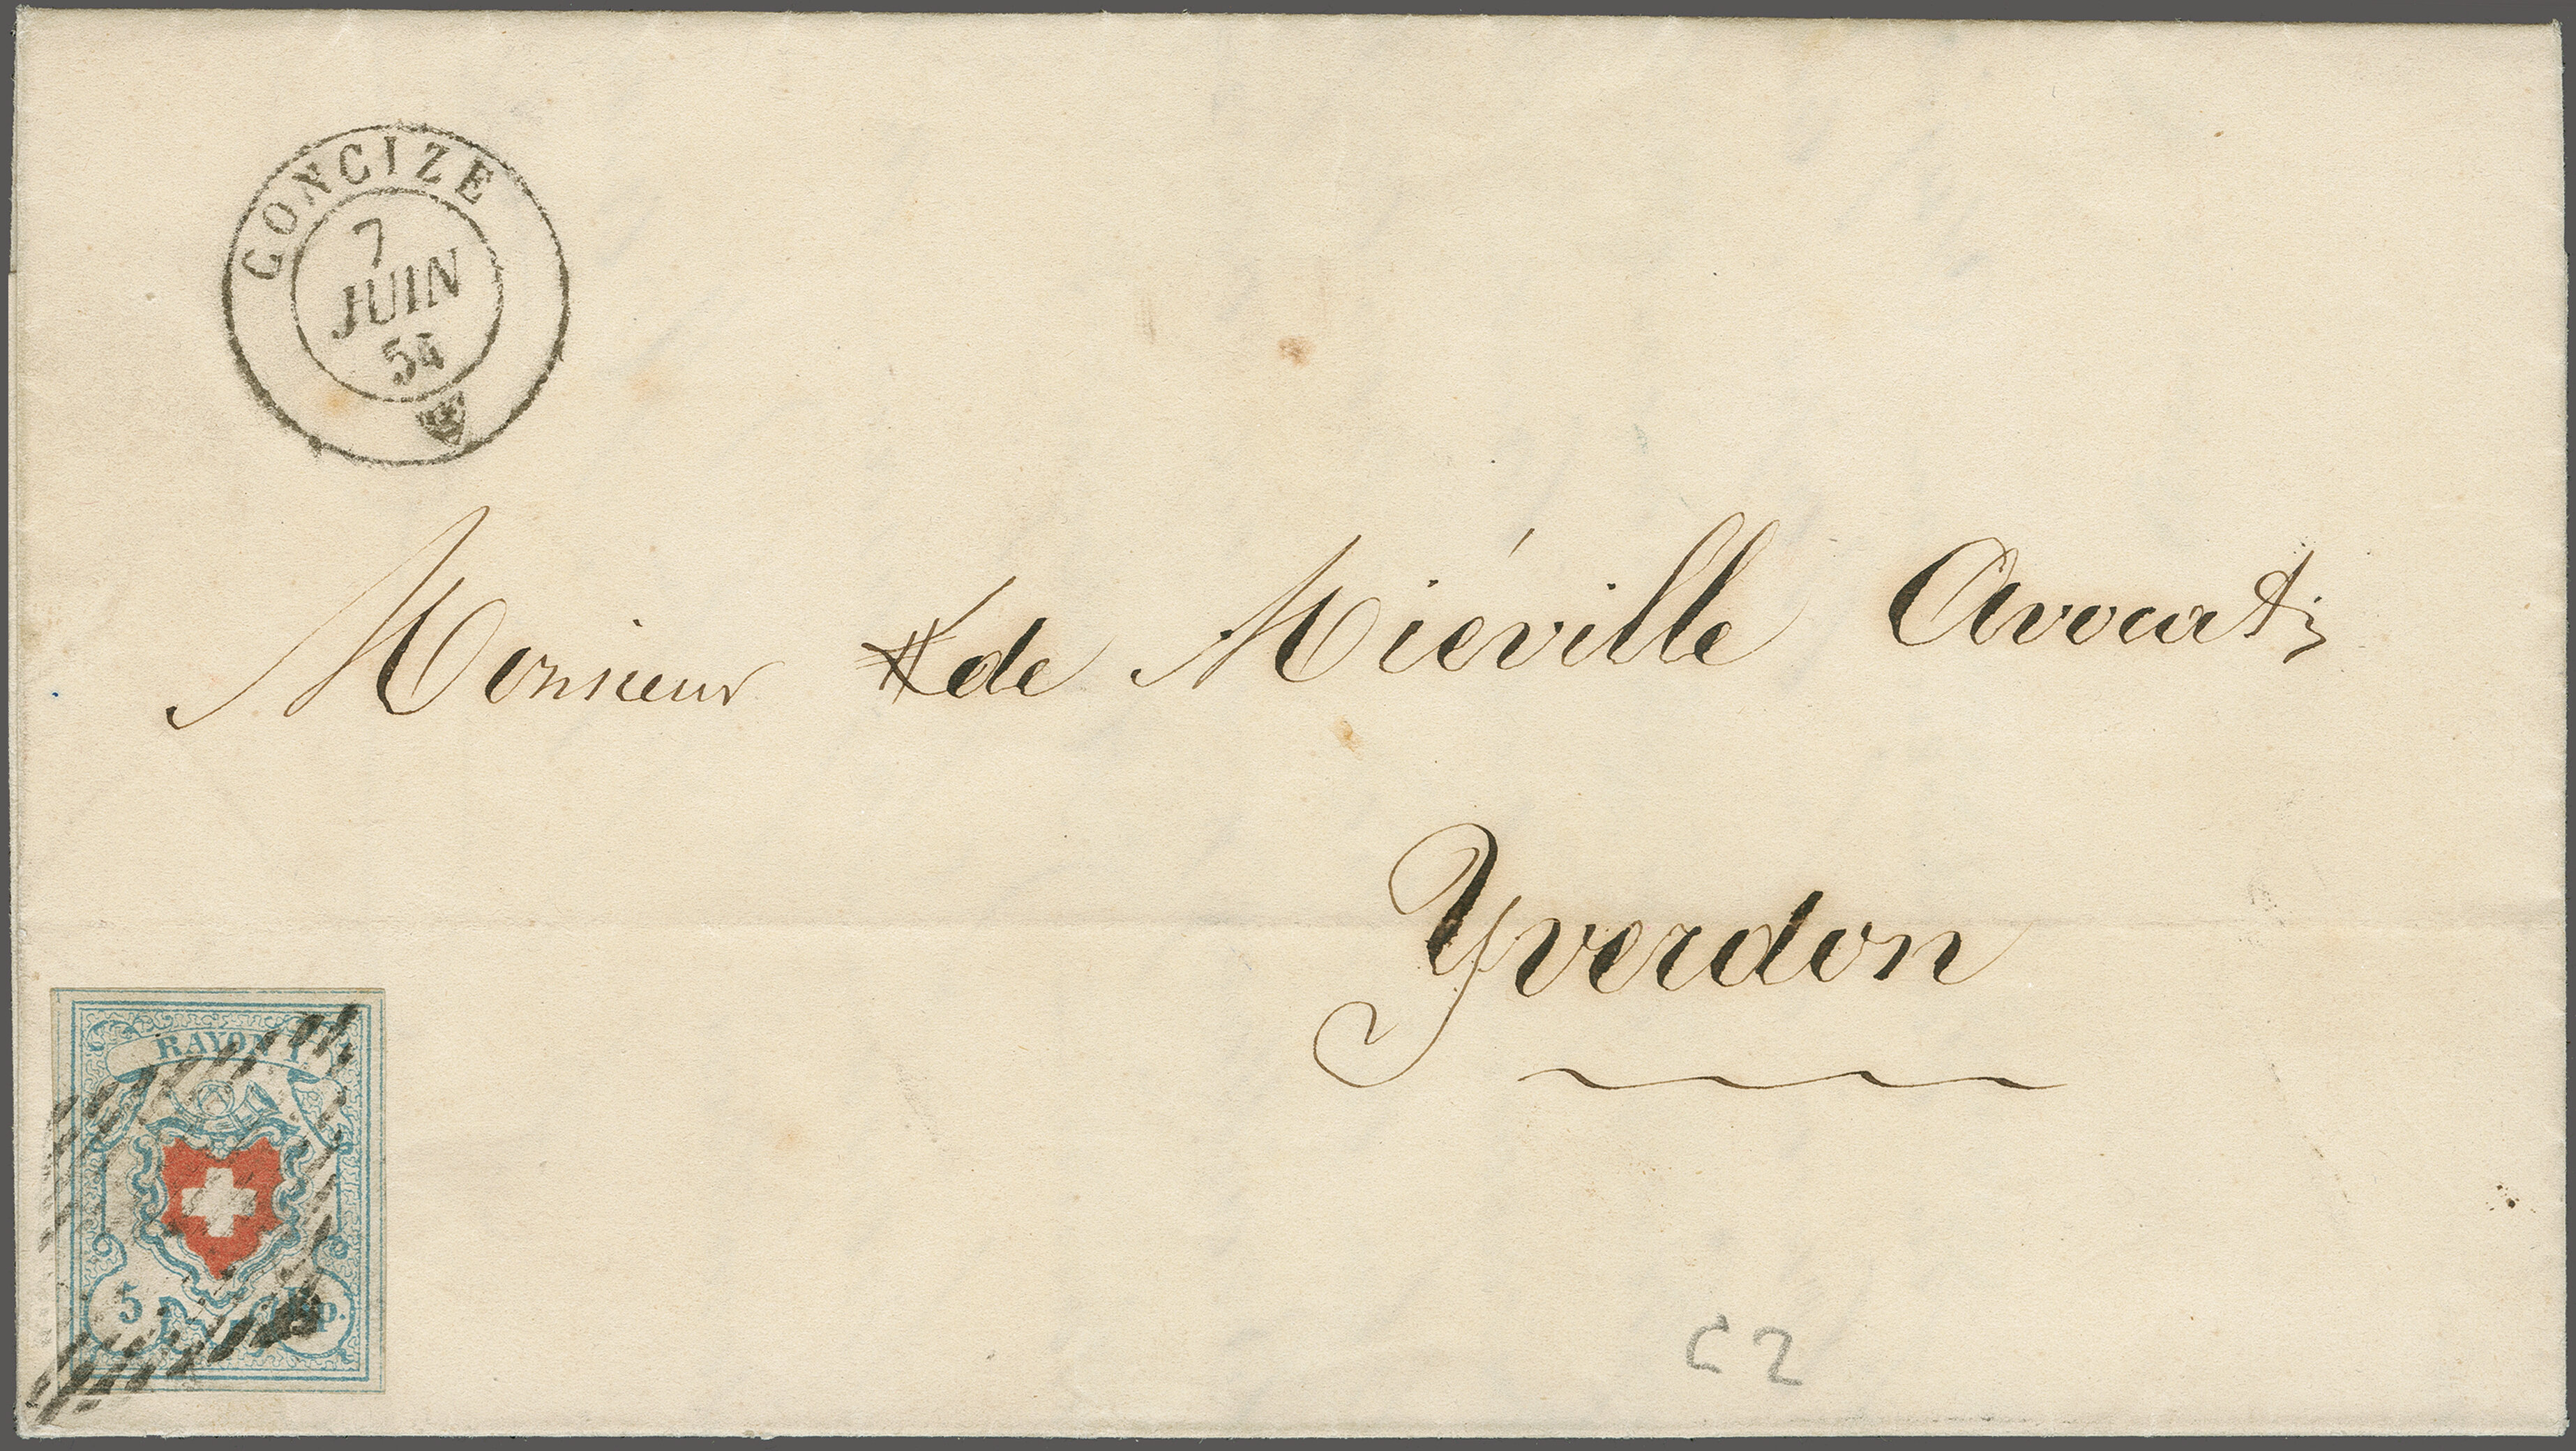 CONCIZE
7
JUIN
54
Monsieur de Miéville Avocat
Yverdon
RAYON I
5 Rp.
C2